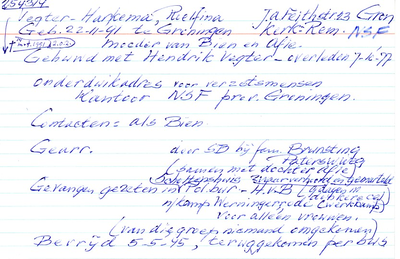 Vegter-Harkema, Roelfina J.A. Feithstr. 13 Gron
Geb. 22-11-91 te Groningen Kerk: Rem. NSF
moeder van Bien en Afie.
Gehuwd met Hendrik Vegter - overleden 7-10-'77
onderduikadres voor verzetsmensen
Kantoor NSF prov. Groningen.
Contacten: als Bien
Gearr. door SD bij fam. Brunsting
Paterswolde
(samen met dochter Afie)
Gevangen gezeten in Pol.bur - H.v.B
n/kamp Wernigerode (werkkamp)
voor alleen vrouwen.
(van die groep niemand omgekomen)
Bevrijd 5-5-45, teruggekomen per bus